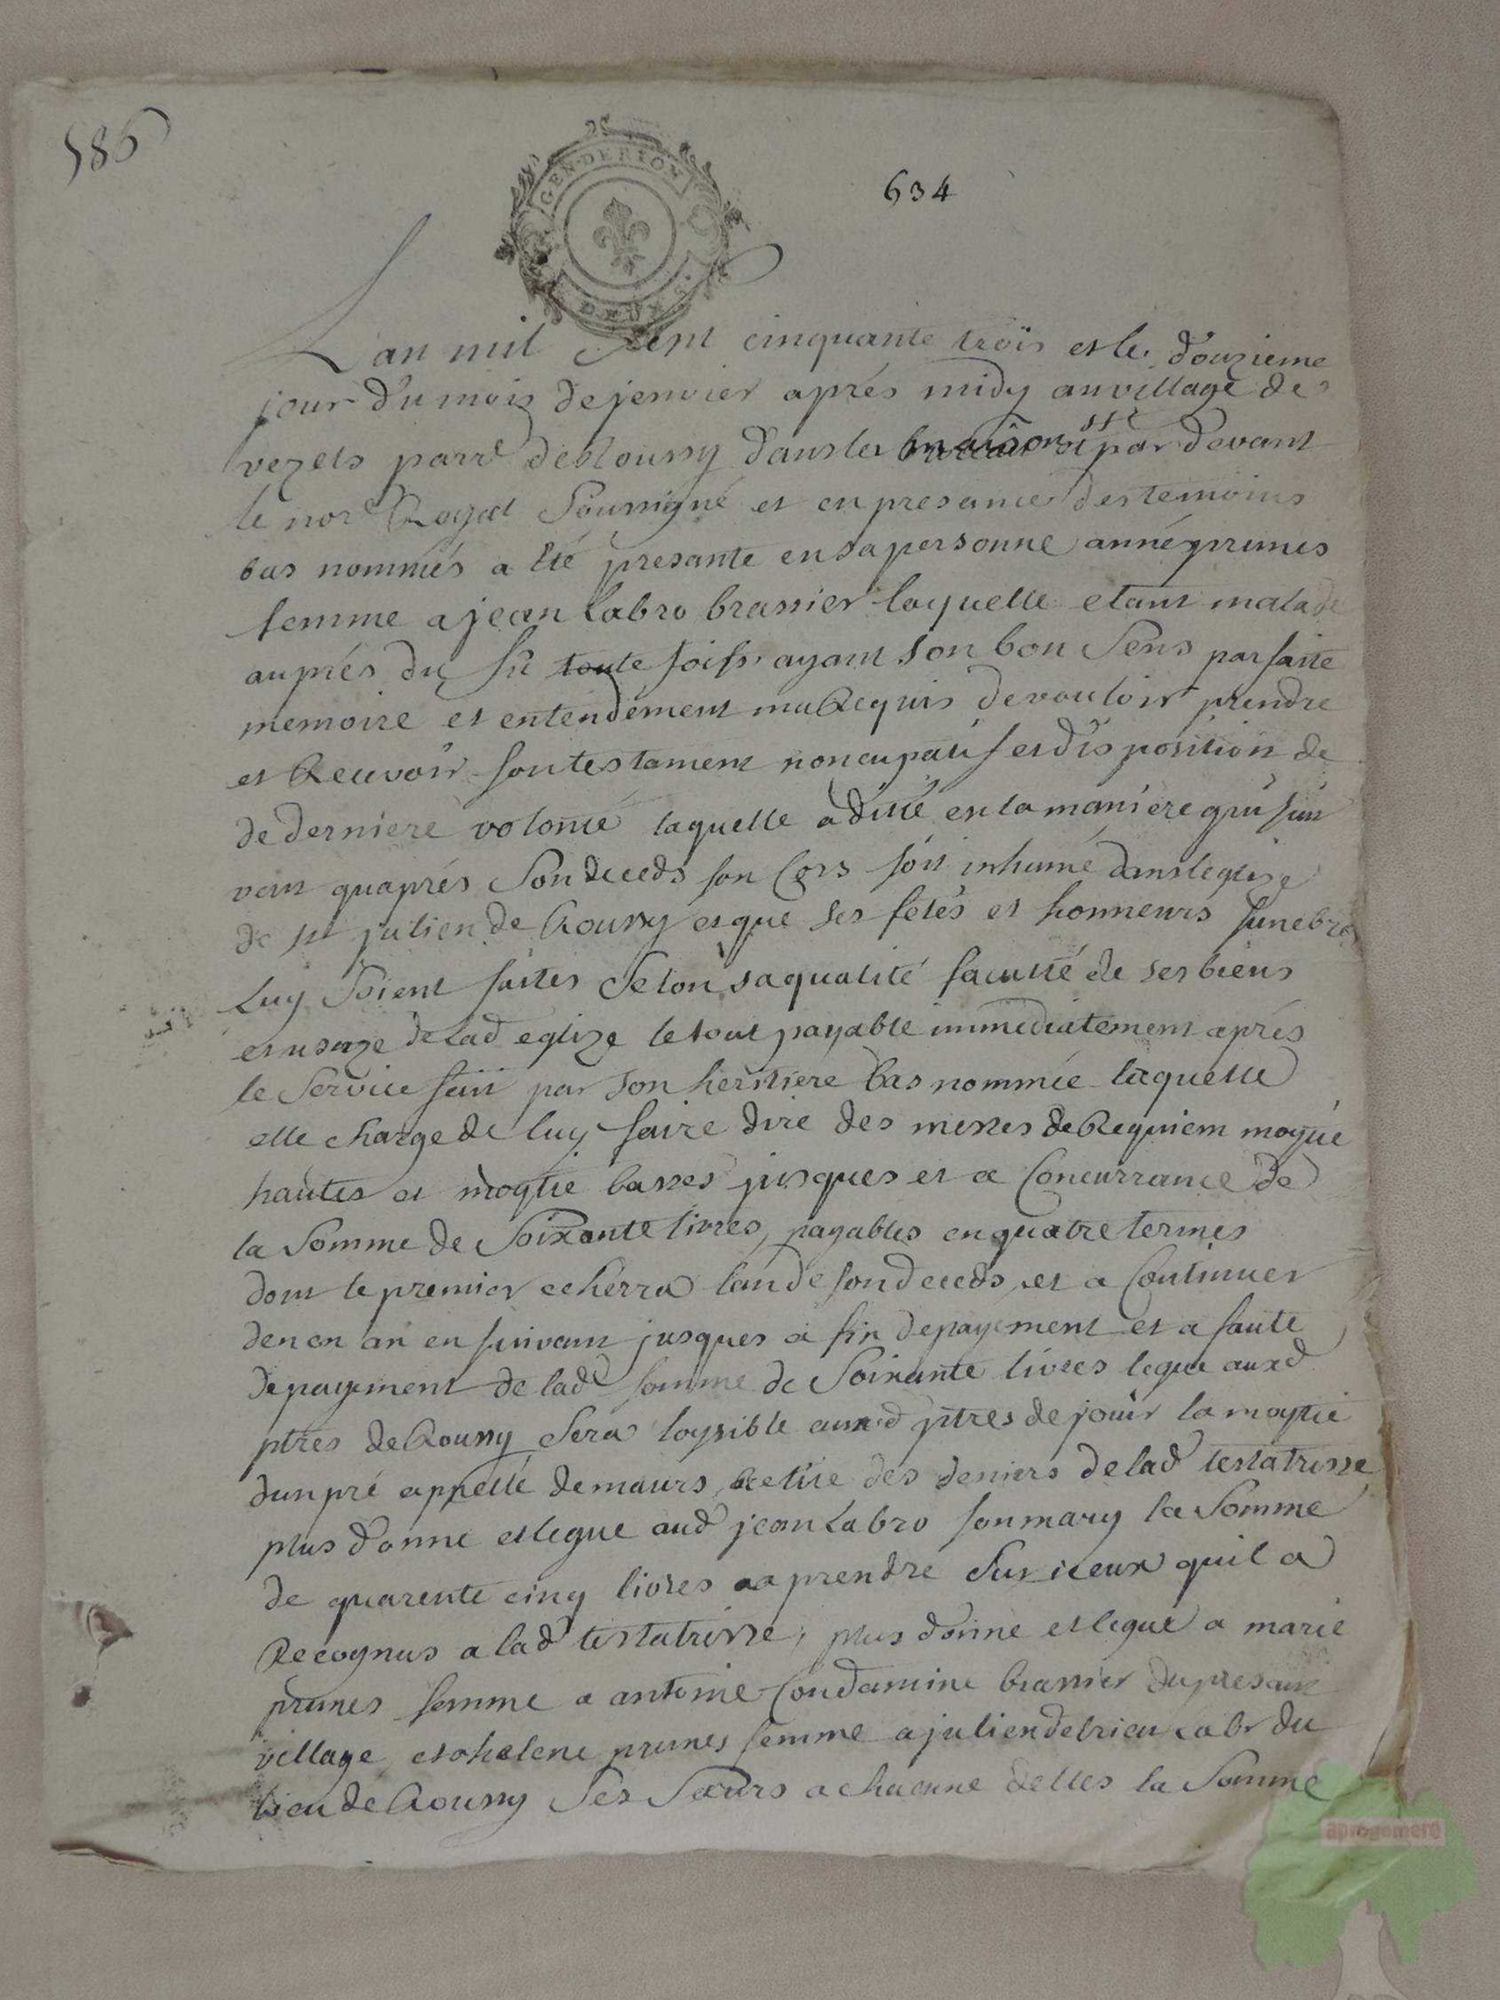 586
634
GEN. DE RIOM
DEUX S.
L'an mil sept cinquante trois et le douzieme
jour du mois de jenvier aprés midy au village de
vezels parr^e de Roussy dans la maison par devant
le no^re Royal soussigné et en presance des temoins
bas nommés a été presante en sa personne anné prunes
femme a jean Labro brassier laquelle etant malade
auprés du fû toute foiss ayant son bon sens parfaite
memoire et entendement ma Requis de vouloir prendre
et Recevoir son testament noncupatif et disposition de
de derniere volonté laquelle a dicté en la maniere qui suin
vent quaprés son deceds son Cors soit inhumé dans leglize
de s^t julien de Roussy et que ses fetes et honneurs funebres
Luy soient faites selon sa qualité faculté de ses biens
et usage de lad eglize le tout payable immediatement aprés
le service fait par son heritiere bas nommée laquelle
elle charge de luy faire dire des messes de Requiem moytié
hautes et moytié basses jusques et a Concurrance de
la somme de soixante livres, payables en quatre termes
dont le premier echerra lan de son deceds, et a Continuer
den en an en suivant jusques a fin de payement et a faute
de payement de lad^e somme de soixante livres legué auxd
ptres de Roussy sera loysible auxd ptres de jouir la moytié
dun pré appellé demaurs, des deniers de lad testatrisse
plus donne et legue aud jean Labro son mary la somme
de quarente cinq livres a prendre sur iceux quil a
Recognus a lad testatrisse, plus donne et legue a marie
prunes femme a antoine Condamine brassier du presant
village et a helene prunes femme a julien delrieu labr du
lieu de Roussy ses sœurs a chacune delles la somme
aprogemere